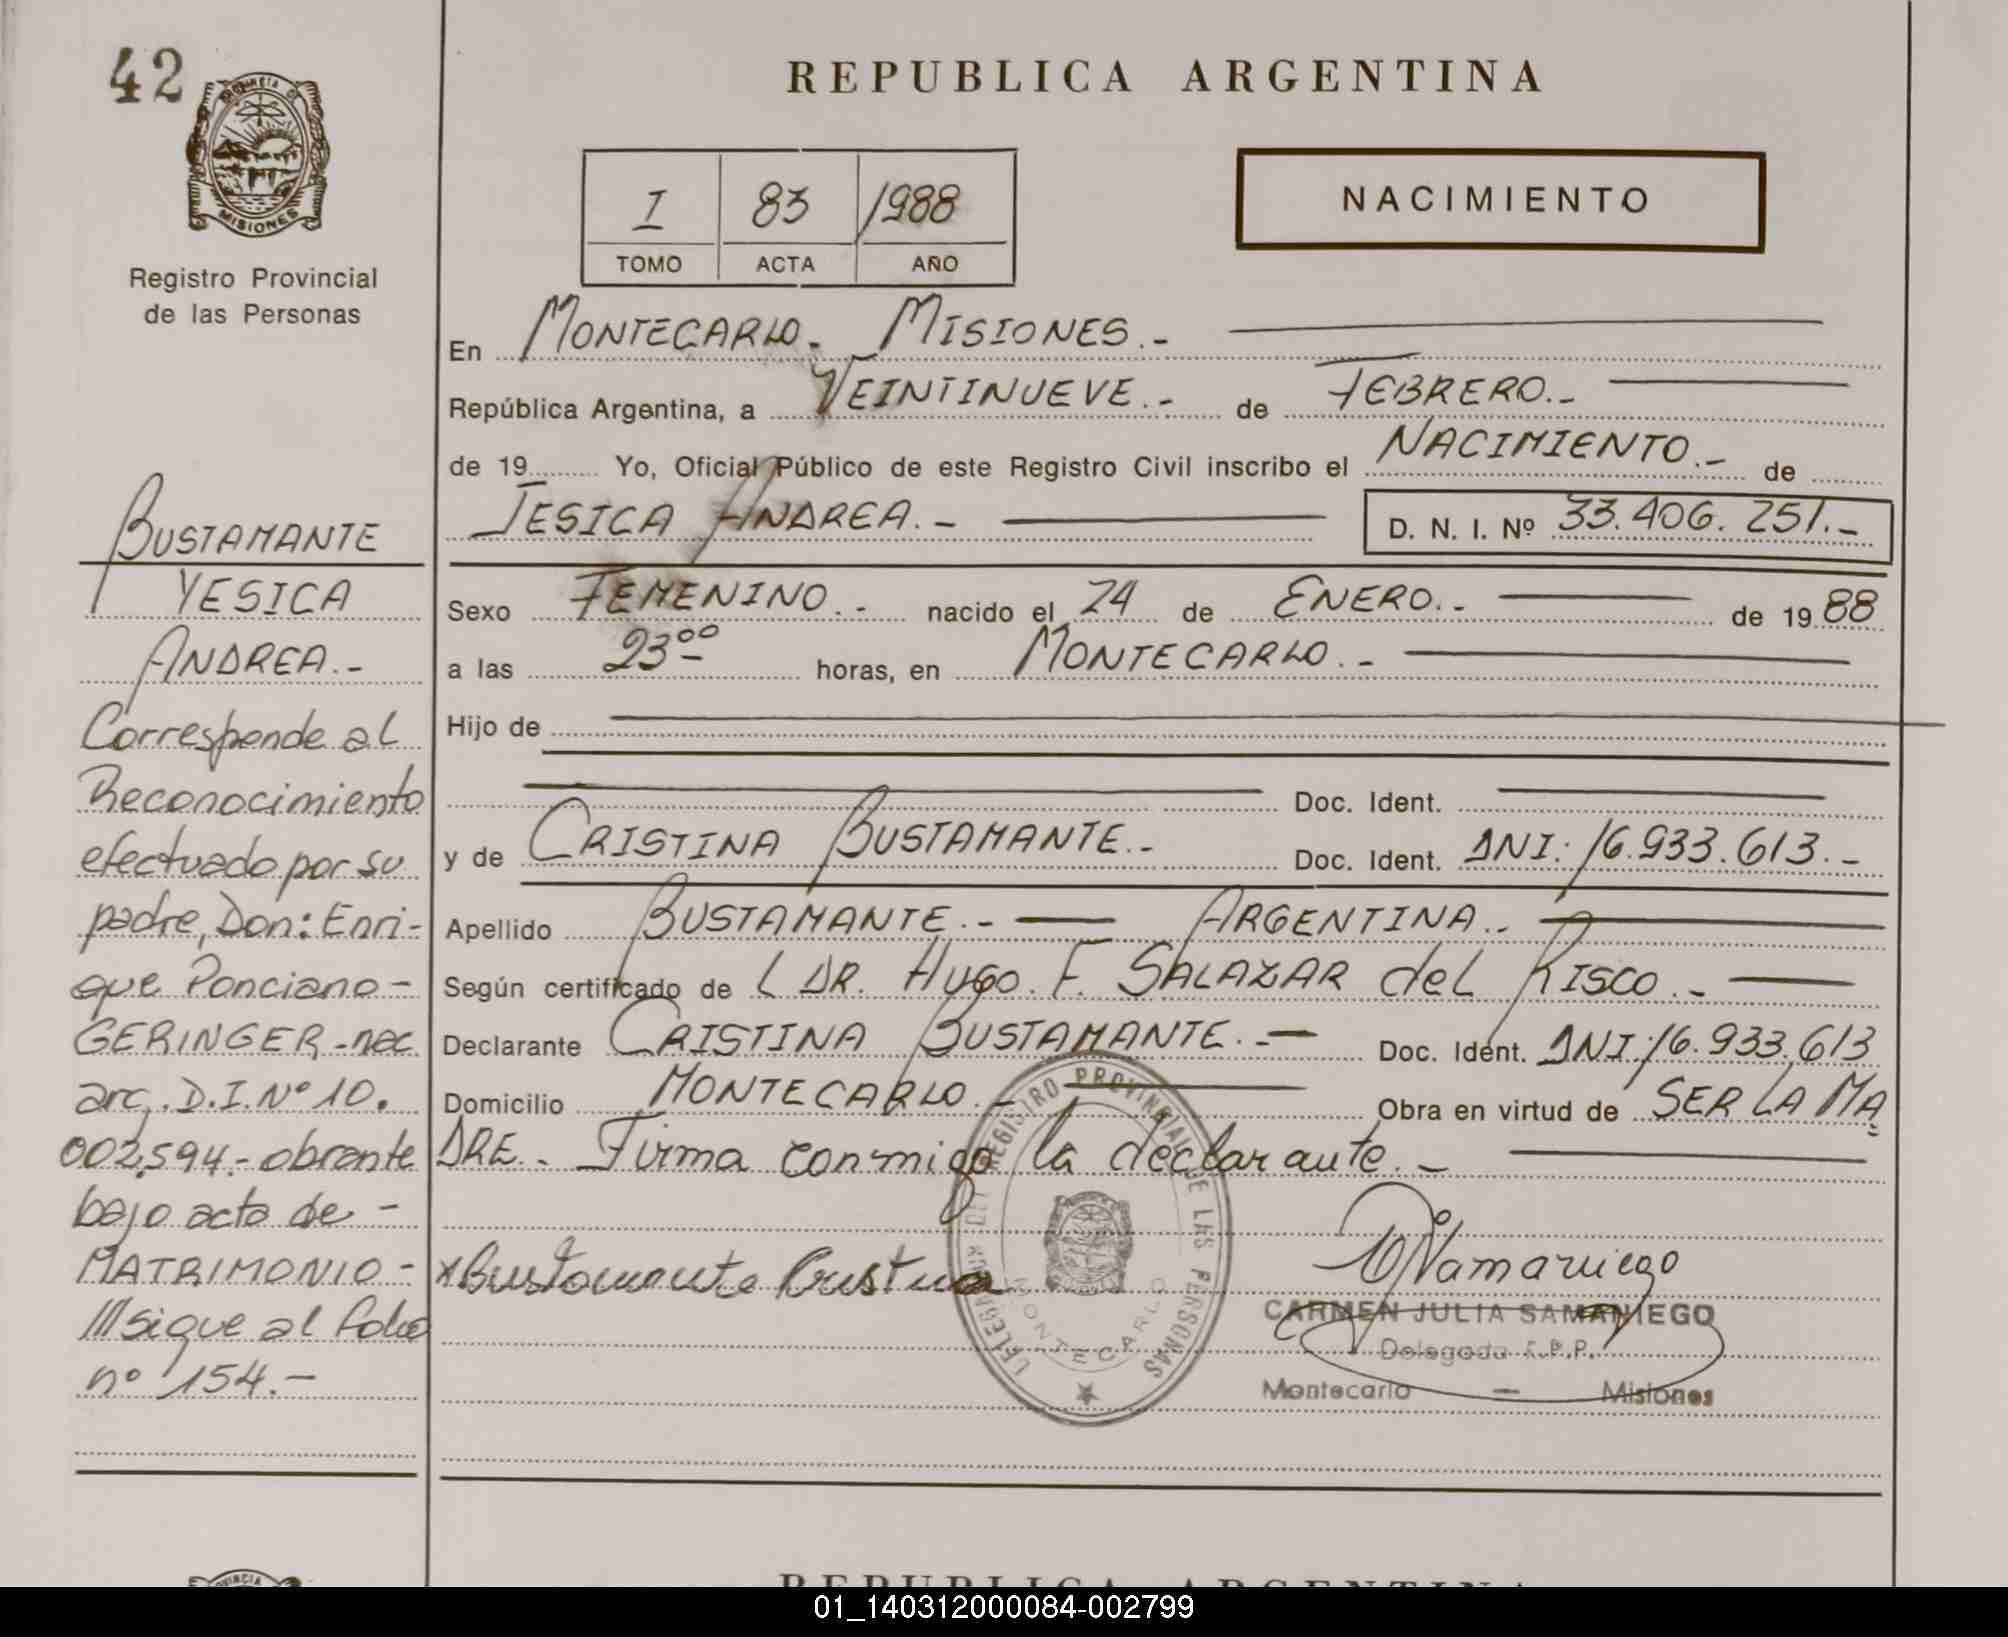 42
PROVINCIA DE
MISIONES
Registro Provincial
de las Personas
BUSTAMANTE
YESICA
ANDREA.-
Corresponde al
Reconocimiento
efectuado por su
padre, Don: Enri-
que Ponciano-
GERINGER-nac
arg. D.I.Nº 10.
002.594.- obrante
bajo acta de -
MATRIMONIO -
///sigue al folio
nº 154.-
REPUBLICA ARGENTINA
I 83 1988
TOMO ACTA AÑO
NACIMIENTO
En MONTECARLO.- MISIONES.-
República Argentina, a VEINTINUEVE.- de FEBRERO.-
de 19 Yo, Oficial Público de este Registro Civil inscribo el NACIMIENTO.- de
JESICA ANDREA.- D. N. I. Nº 33.406.251.-
Sexo FEMENINO.- nacido el 24 de ENERO.- de 19 88
a las 23⁰⁰ horas, en MONTECARLO.-
Hijo de
Doc. Ident.
y de CRISTINA BUSTAMANTE.- Doc. Ident. DNI: 16.933.613.-
Apellido BUSTAMANTE.- ARGENTINA.-
Según certificado de L DR. HUGO. F. SALAZAR del RISCO.-
Declarante CRISTINA BUSTAMANTE.- Doc. Ident. DNI: 16.933.613
Domicilio MONTECARLO.- Obra en virtud de SER LA MA
DRE.- Firma conmigo la declarante.-
x Bustamante Cristina
DELEGACION DEL REGISTRO PROVINCIAL DE LAS PERSONAS
MONTECARLO
CARMEN JULIA SAMANIEGO
Delegada R.P.P.
Montecarlo — Misiones
PROVINCIA
REPUBLICA ARGENTINA
01_140312000084-002799